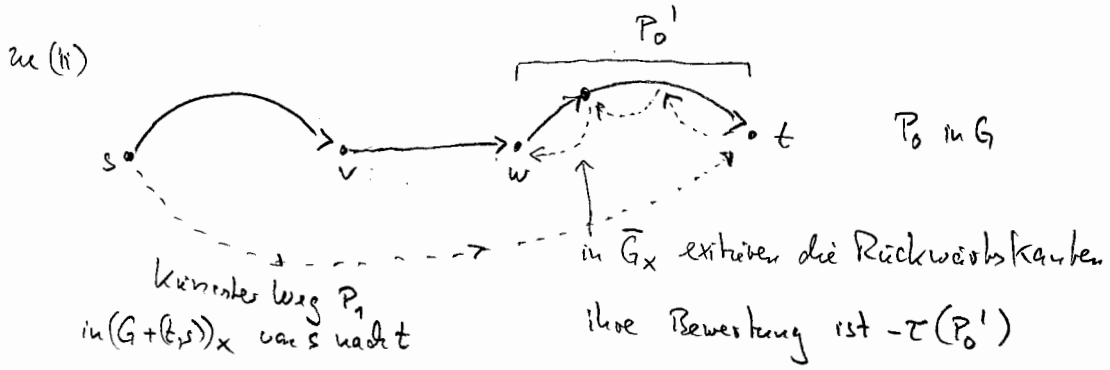 zu (ii)
P₀'
s
v
w
t
P₀ in G
Kürzester Weg P₁
in (G+(t,s))ₓ von s nach t
in G̅ₓ existieren die Rückwärtskanten
ihre Bewertung ist -τ(P₀')